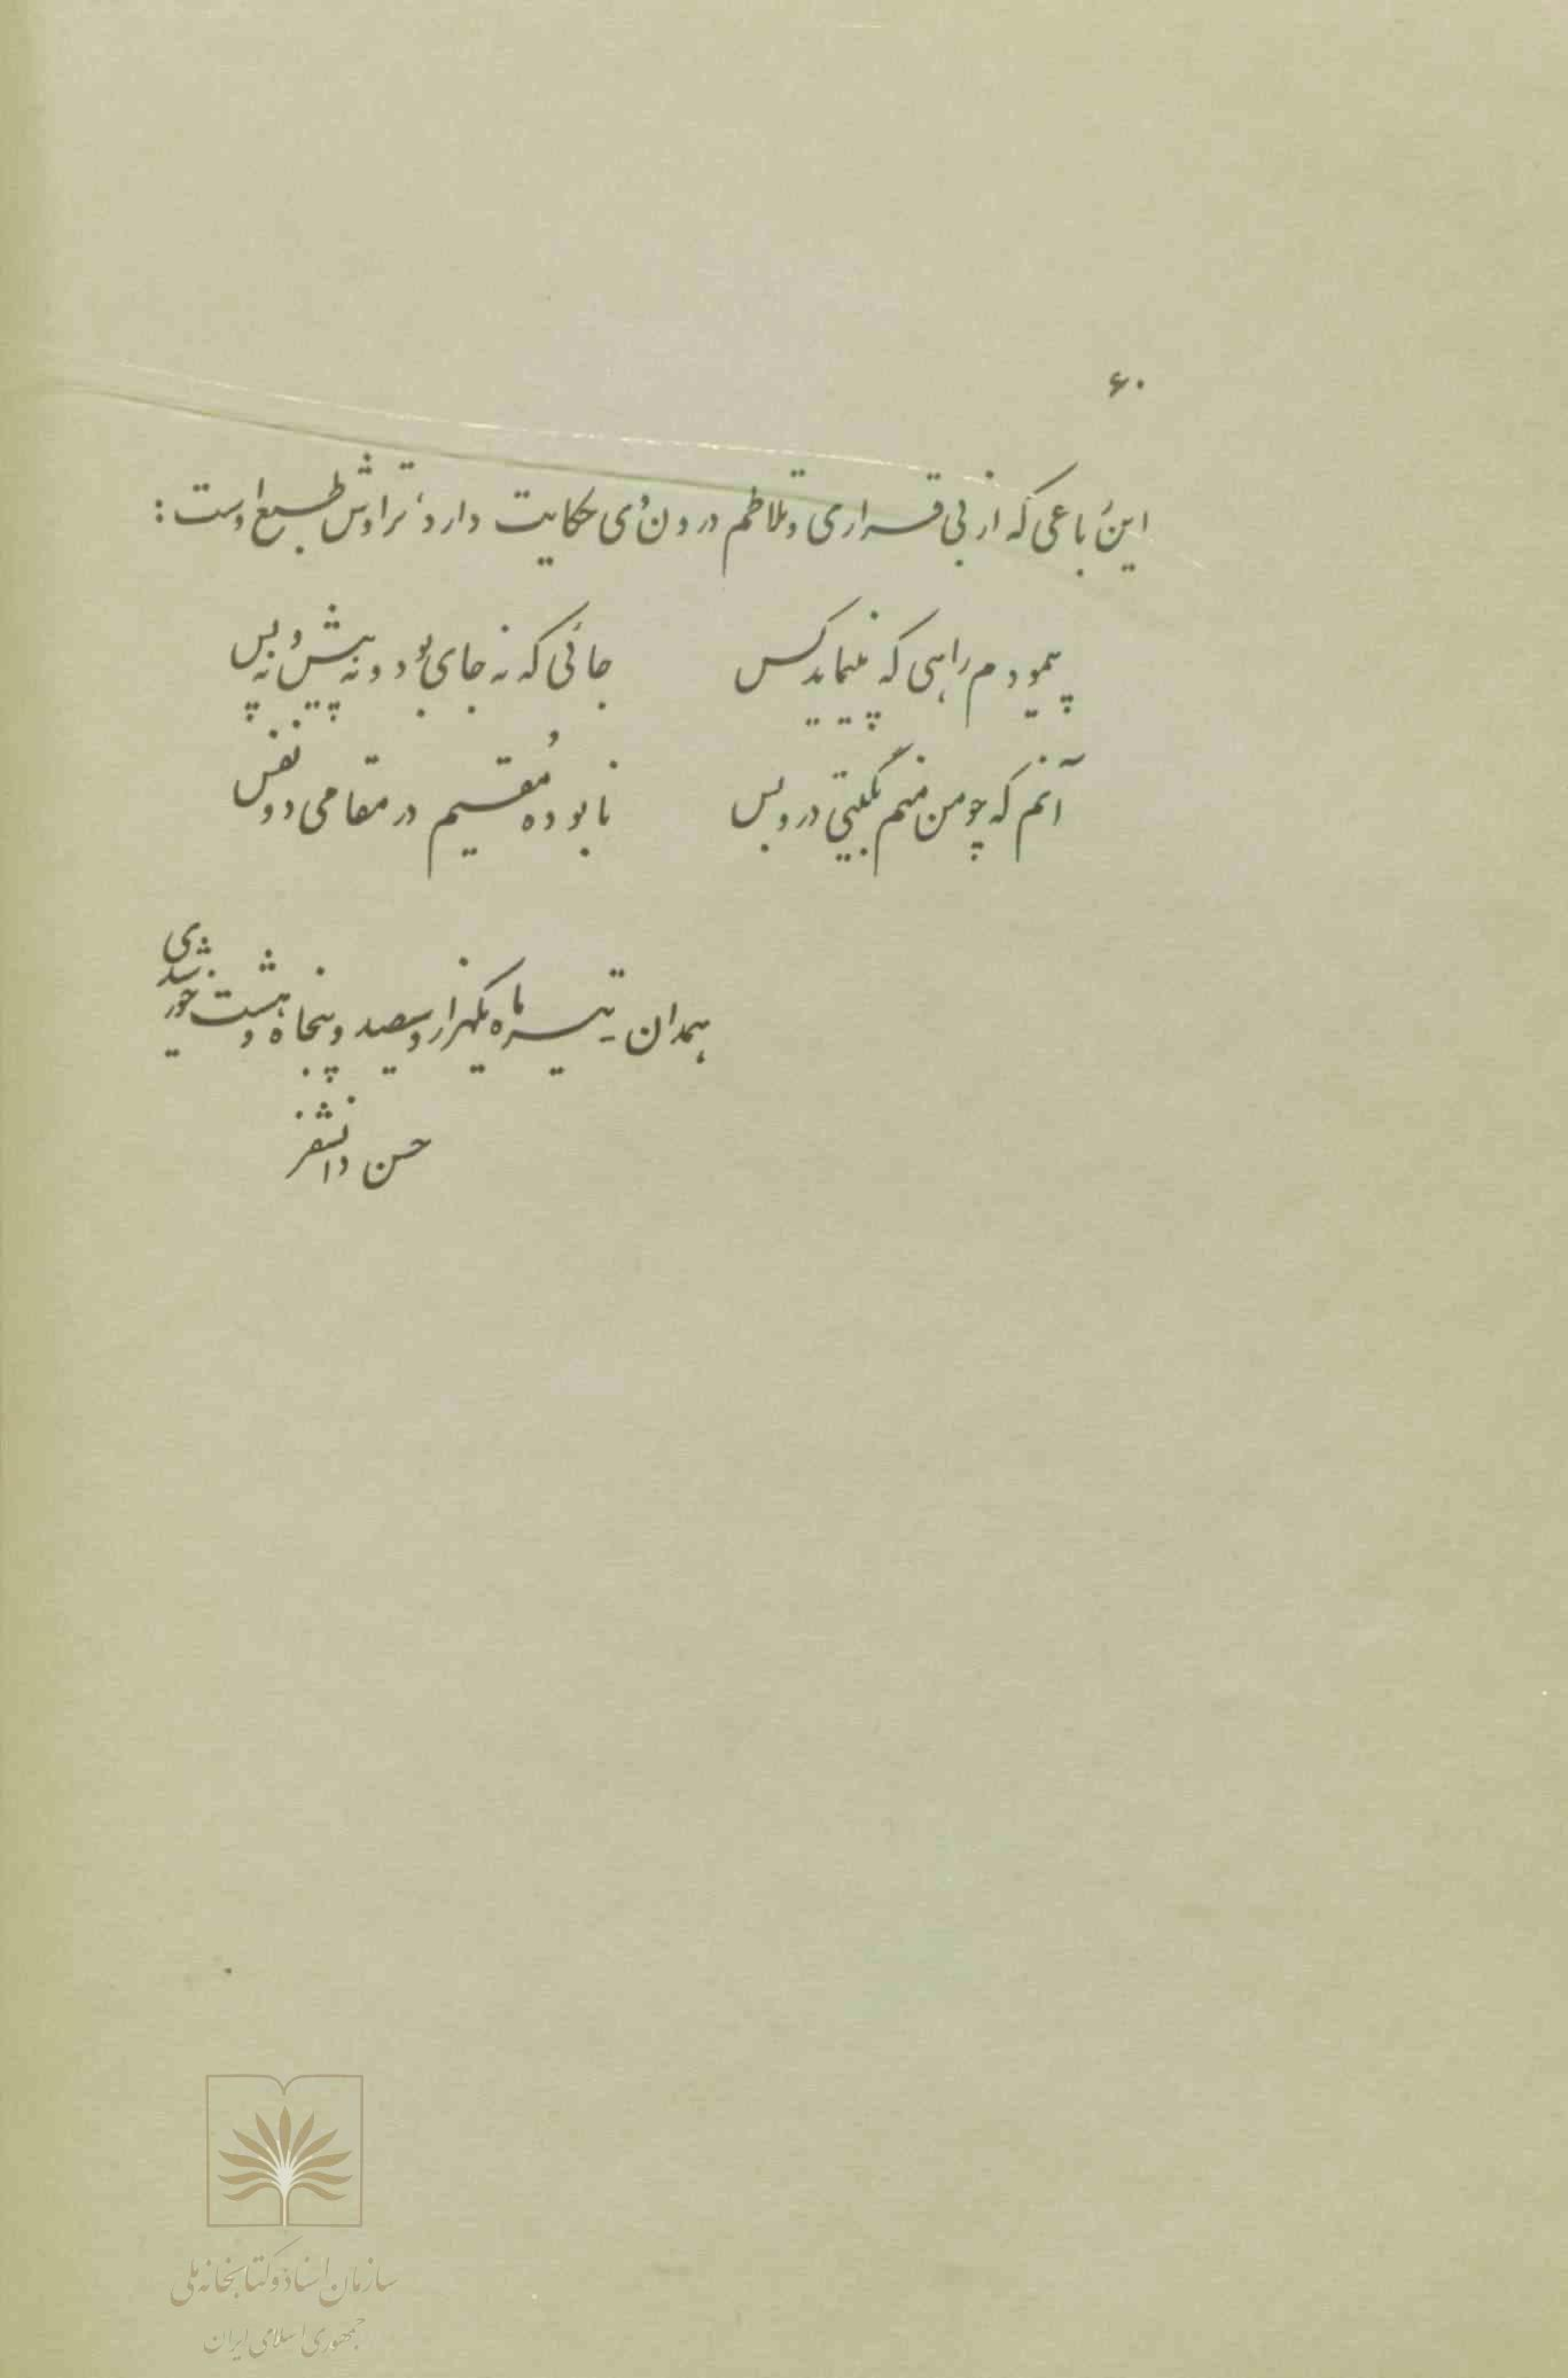 ۶۰
این رباعی که از بی قراری و تلاطم درون وی حکایت دارد، تراوش طبع اوست:
پیمودم راهی که نپیماید کس جائی که نه جای بود و نه پیش و نه پس
آنم که چو من منم بگیتی در و بس نابوده مقیم در مقامی دو نفس
همدان - تیر ماه یکهزار و سیصد و پنجاه و هشت خورشیدی
حسن دانشفر
سازمان اسناد و کتابخانه ملی
جمهوری اسلامی ایران